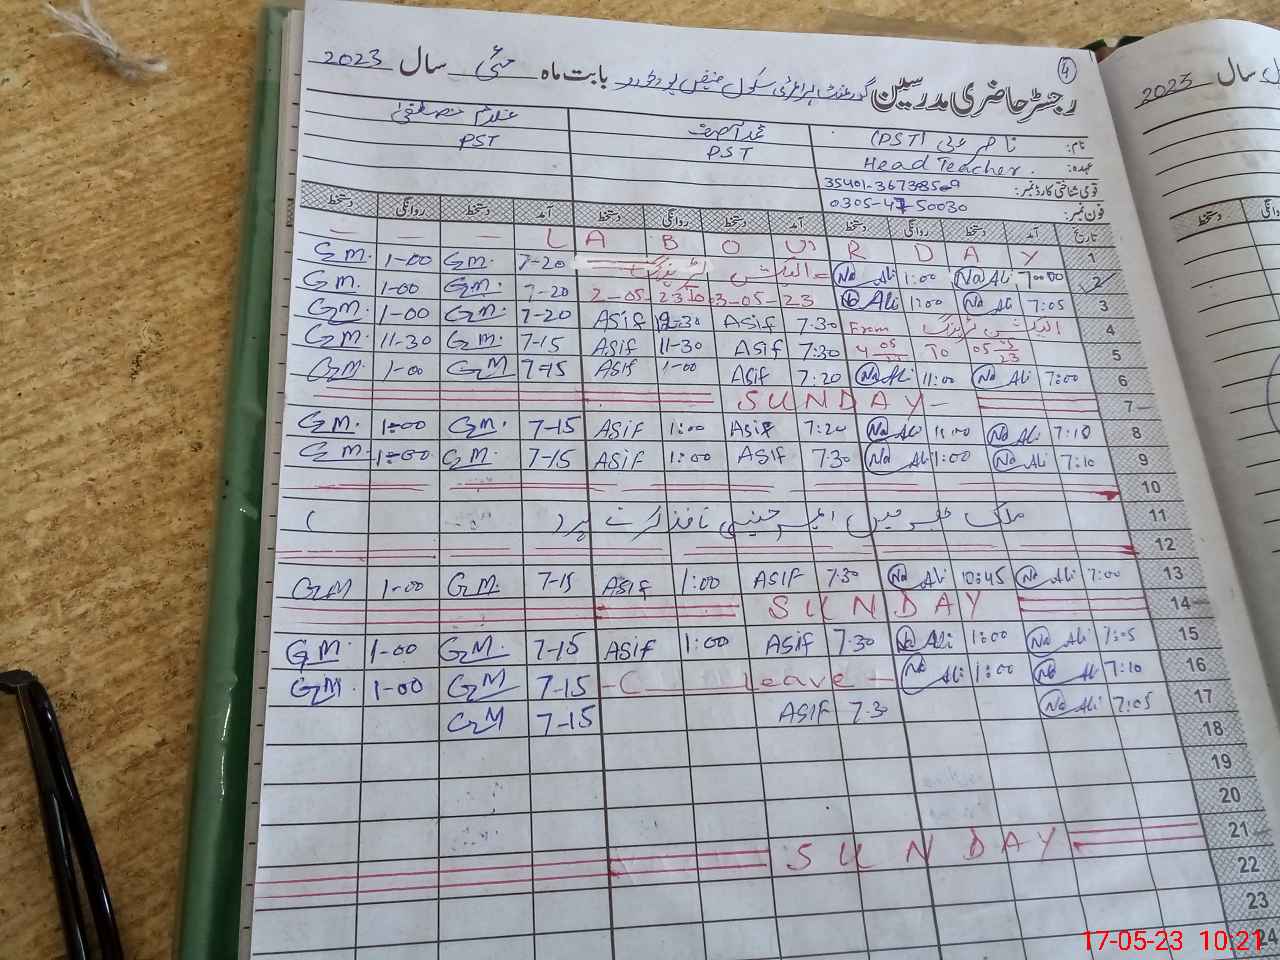 رجسٹر حاضری مدرسین گورنمنٹ پرائمری سکول بابت ماہ مئی سال 2023
4
نام: ناصر علی (PST) محمد آصف غلام مصطفیٰ
عہدہ: Head Teacher. PST PST
قومی شناختی کارڈ نمبر:
فون نمبر:
تاریخ آمد دستخط روانگی دستخط آمد دستخط روانگی دستخط آمد دستخط روانگی دستخط
1 L A B O U R D A Y
2 7:00 Na Ali 1:00 Na Ali الیکشن ٹریننگ 7-20 GM. 1-00 GM.
3 7:05 Na Ali 1:00 Ali 2-05-23 to 3-05-23 7-20 GM. 1-00 GM.
4 الیکشن ٹریننگ From 7:30 Asif Asif 7-20 GM. 1-00 GM.
5 05 05 23 To 4 05 7:30 Asif 11-30 Asif 7-15 GM. 11-30 GM.
6 7:00 Na Ali 11:00 Na Ali 7:20 Asif 1-00 Asif 7-15 GM 1-00 GM.
7 SUNDAY
8 7:10 Na Ali Na Ali 7:20 Asif 1:00 Asif 7-15 GM. 1:00 GM.
9 7:10 Na Ali 1:00 Na Ali 7:30 Asif 1:00 Asif 7-15 GM. 1:00 GM.
10
11 ملک بھر میں ایمرجنسی نافذ کرنے پر
12
13 7:00 Na Ali 10:45 Na Ali 7:30 Asif 1:00 Asif 7-15 GM. 1-00 GM
14 SUNDAY
15 7:05 Na Ali 1:00 Ali 7:30 Asif 1:00 Asif 7-15 GM. 1-00 GM.
16 7:10 Na Ali 1:00 Na Ali C Leave 7-15 GM 1-00 GM.
17 7:05 Na Ali 7:30 Asif 7-15 GM
18
19
20
21 SUNDAY
22
23
24
سال 2023
دستخط
17-05-23 10:21